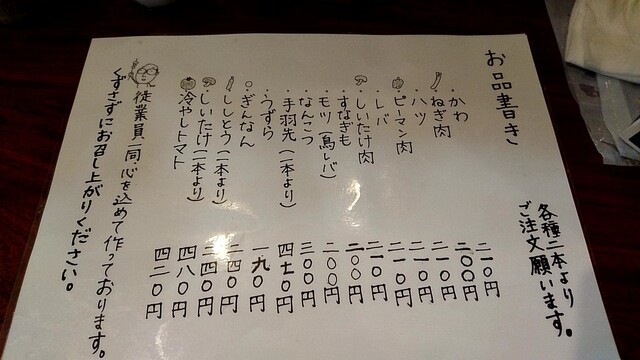 お品書き
各種二本より
ご注文願います。
・かわ 二一〇円
ねぎ肉 二〇〇円
・ハツ 二一〇円
ピーマン肉 二一〇円
・レバ 二一〇円
しいたけ肉 二一〇円
・すなぎも 二〇〇円
・モツ（鳥レバ） 二〇〇円
・なんこつ 二〇〇円
・手羽先（一本より） 四七〇円
・うずら 一九〇円
ぎんなん 二四〇円
ししとう（一本より） 二四〇円
しいたけ（一本より） 四八〇円
冷やしトマト 四二〇円
従業員一同、心を込めて作っております。
くずさずにお召し上がりください。